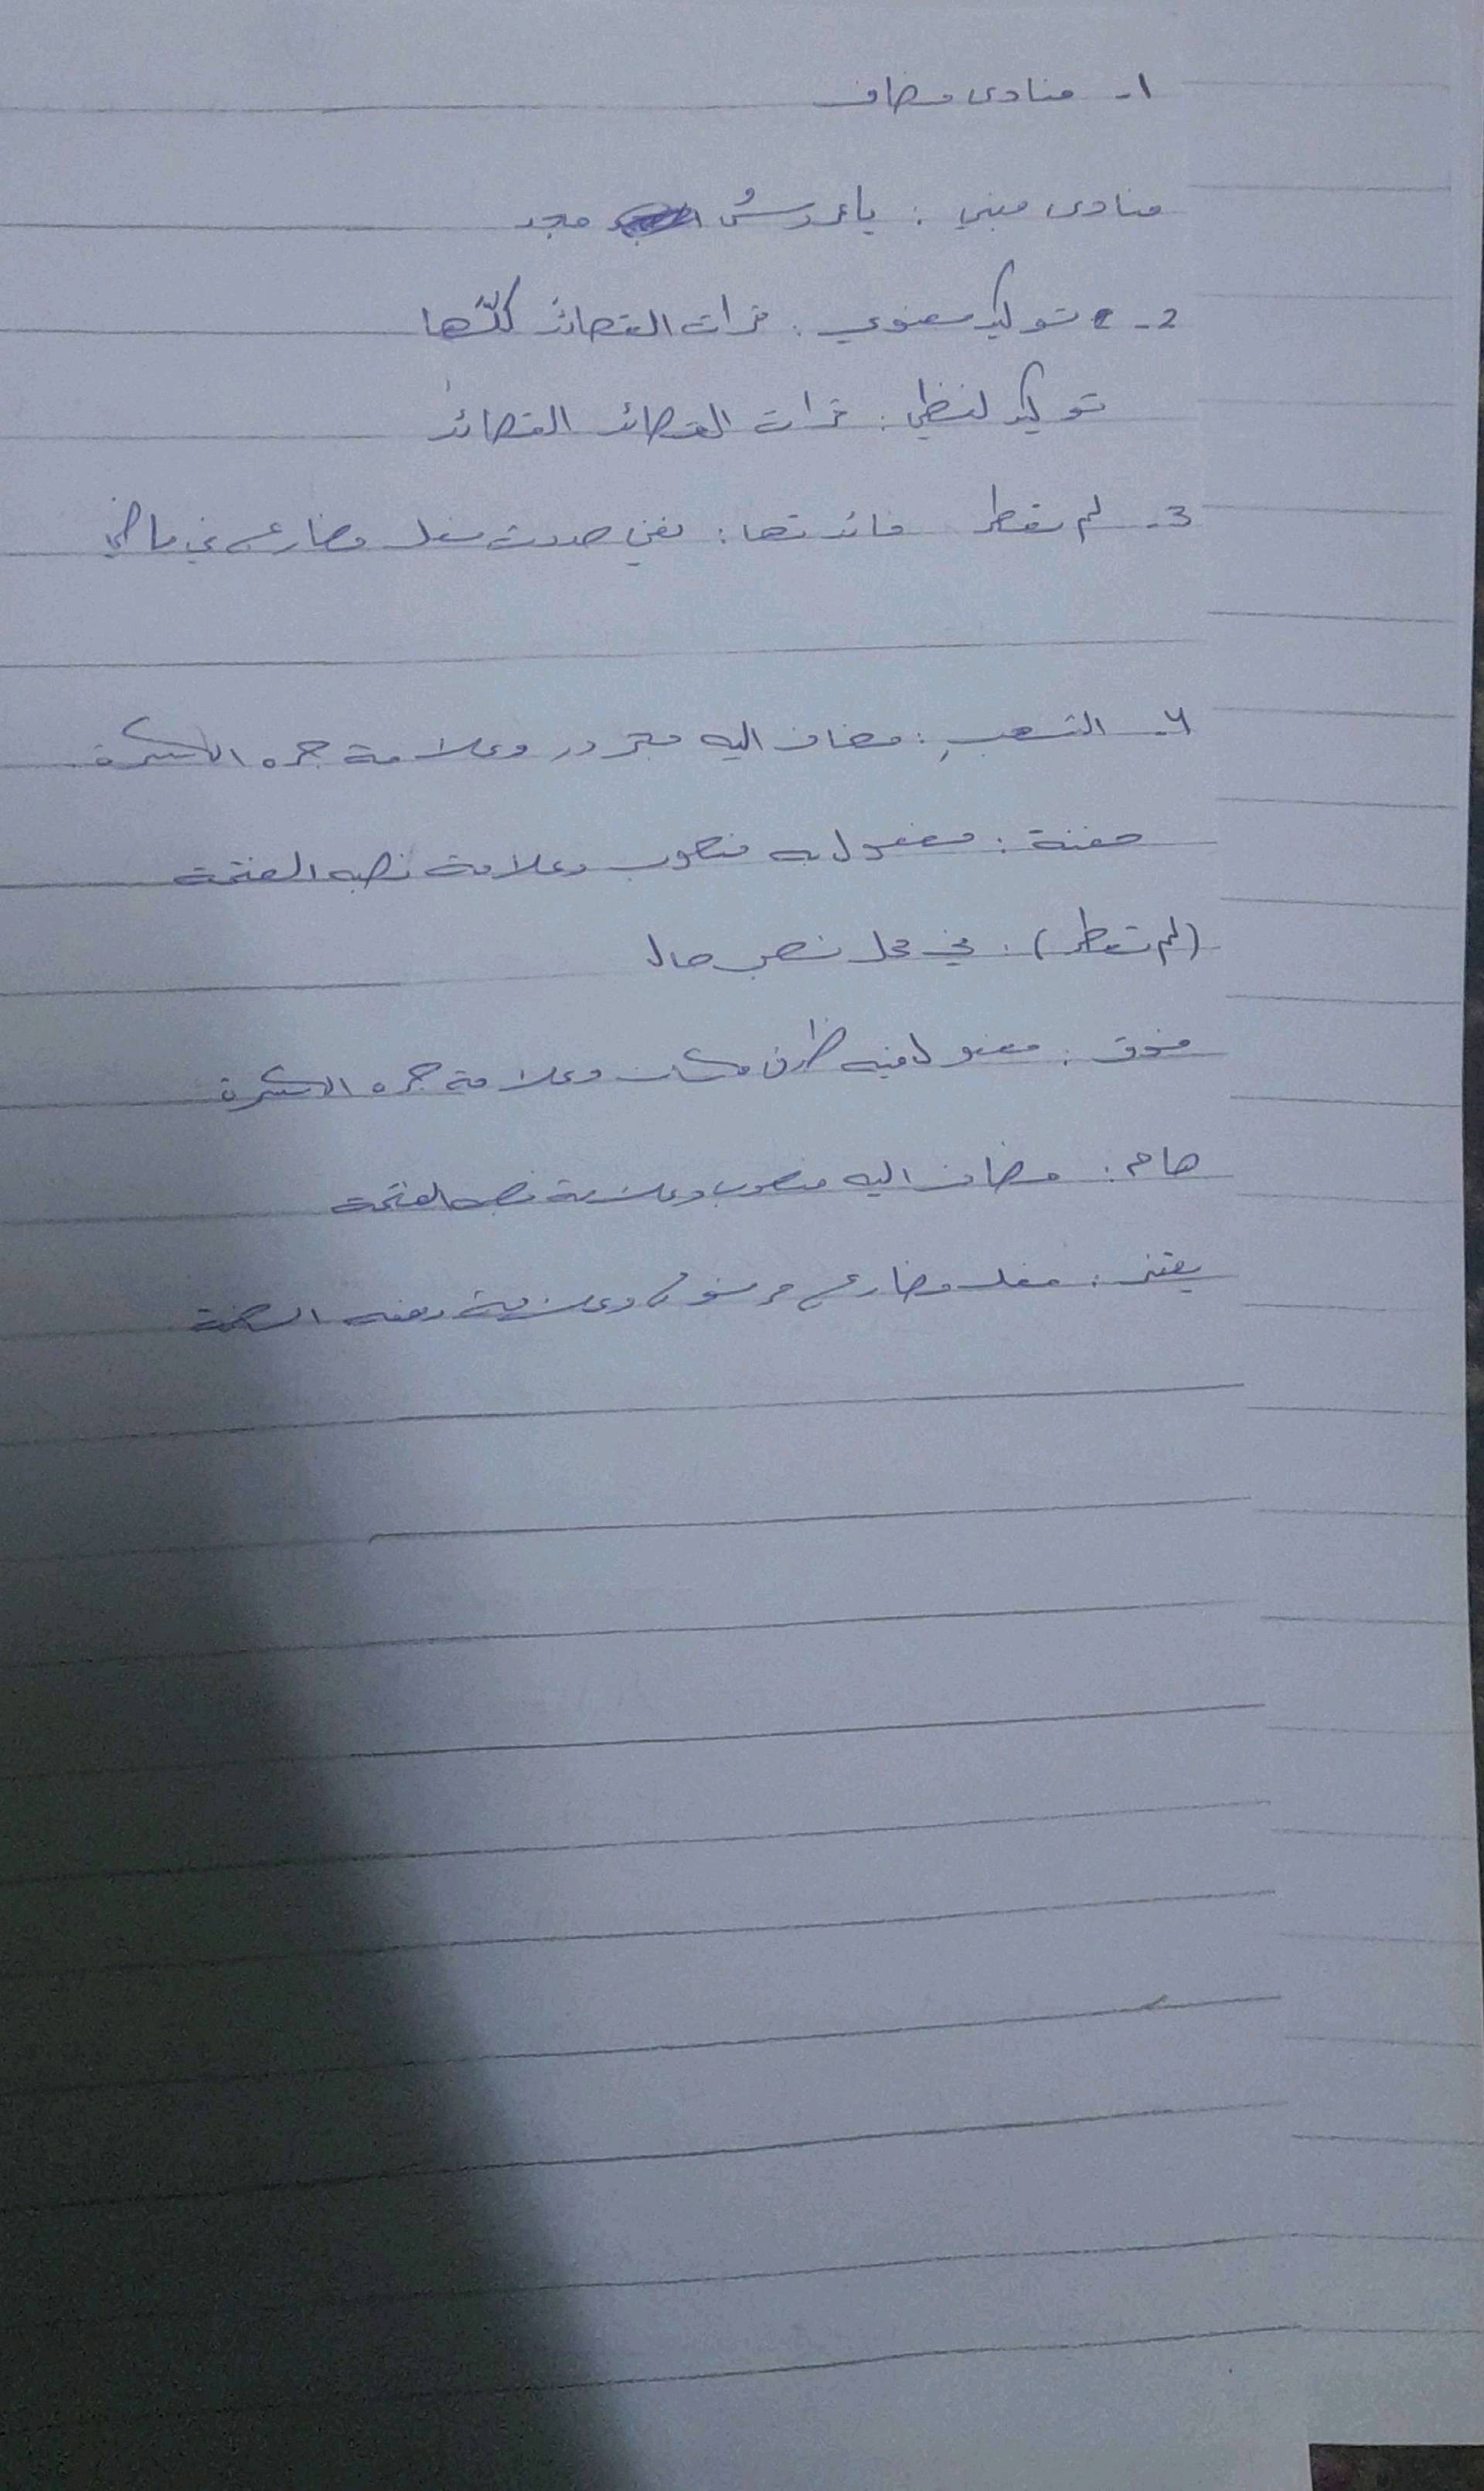 ١- منادى مضاف
منادى مبني : يا عروسُ مجد
2- توكيد معنوي : قرات القصائدَ كلَّها
توكيد لفظي : قرات القصائد القصائدَ
3- لم تعطر فائدتها : نفي حدوث فعل مضارع في ماضي
٤- الشعبِ : مضاف اليه مجرور وعلامة جره الكسرة
حفنة : مفعول به منصوب وعلامة نصبه الفتحة
(لم تعطر) : في محل نصب حال
فوق : مفعول فيه ظرف مكان وعلامة جره الكسرة
هام : مضاف اليه منصوب وعلامة نصبه الفتحة
: فعل مضارع مرفوع وعلامة رفعه الضمة